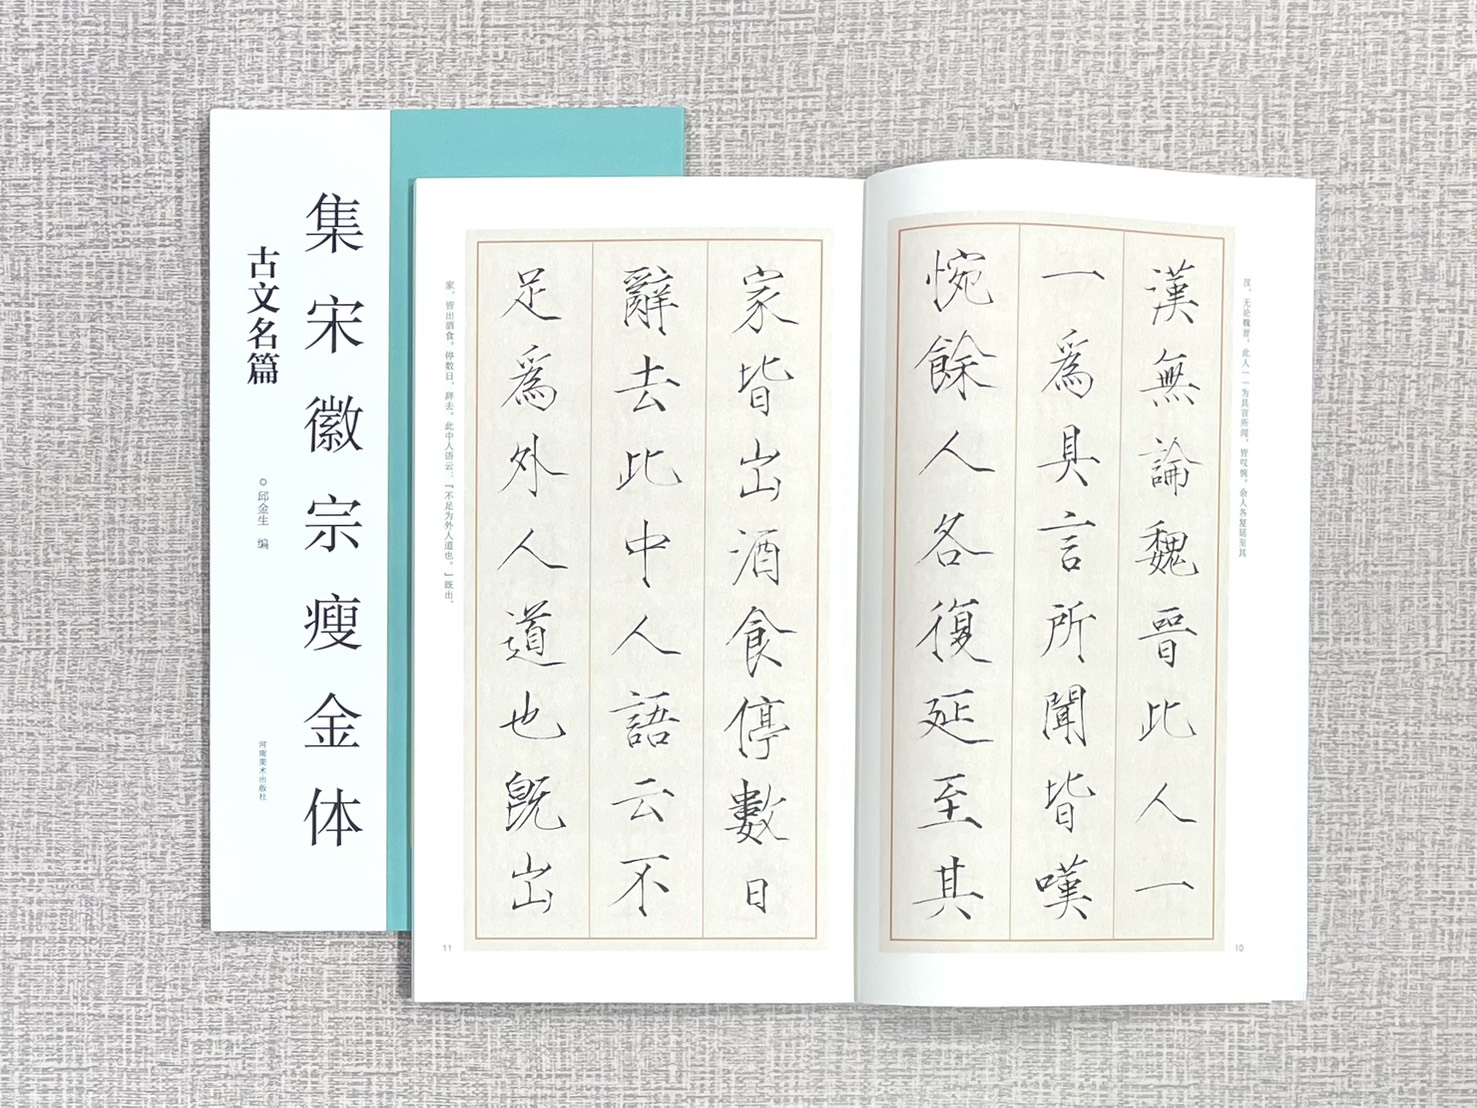 集宋徽宗瘦金体
古文名篇
◎邱金生 编
河南美术出版社
汉，无论魏晋。此人一一为具言所闻，皆叹惋。余人各复延至其
漢無論魏晉此人一
一爲具言所聞皆嘆
惋餘人各復延至其
10
家皆出酒食停數日
辭去此中人語云不
足爲外人道也既出
家，皆出酒食。停数日，辞去。此中人语云：“不足为外人道也。”既出，
11